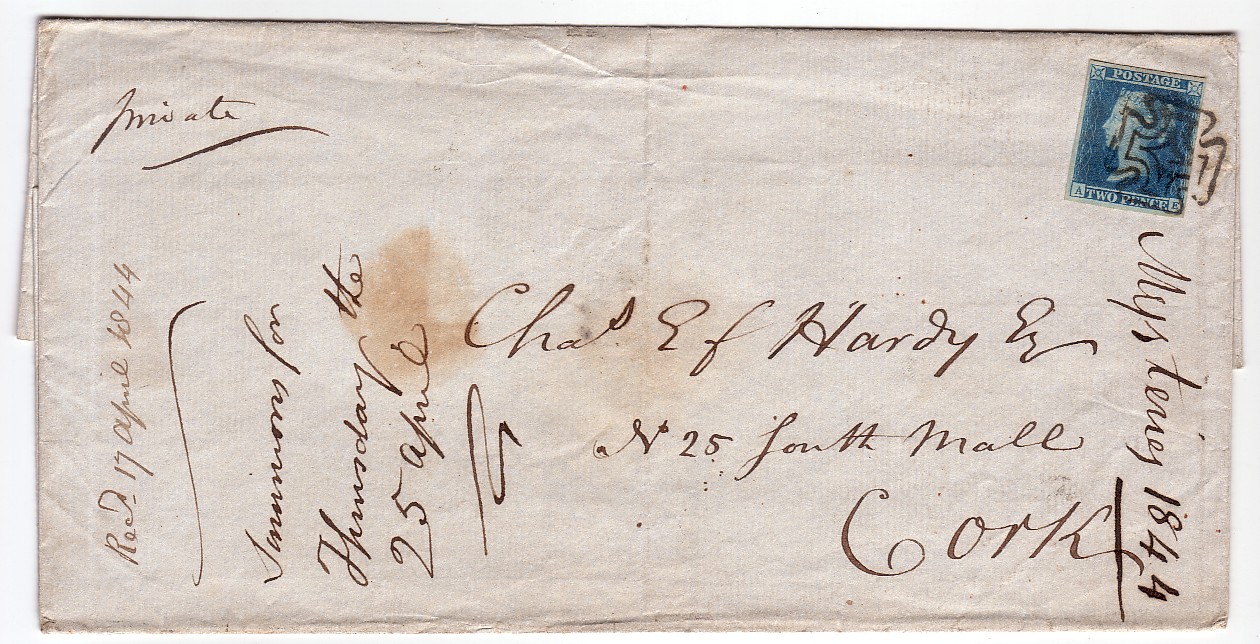 private
POSTAGE
A TWO PENCE E
Chas E f Hardy Esq
No 25 South Mall
Cork
Recd 17 april 1844
Summons for
Thursday the
25 april
Mysteries 1844